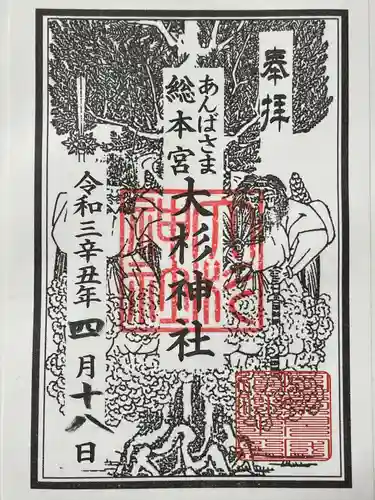 奉拝
あんばさま
総本宮
大杉神社
令和三辛丑年
四月十八日